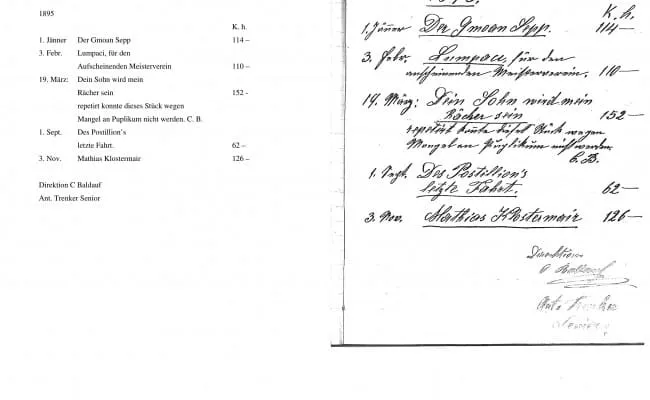 1895
K. h.
1. Jänner Der Gmoan Sepp 114 –
3. Febr. Lumpaci, für den
Aufscheinenden Meisterverein 110 –
19. März: Dein Sohn wird mein
Rächer sein 152 -
repetirt konnte dieses Stück wegen
Mangel an Puplikum nicht werden. C. B.
1. Sept. Des Postillion's
letzte Fahrt. 62 –
3. Nov. Mathias Klostermaier 126 –
Direktion C Baldauf
Ant. Trenker Senior
K. h.
1. Jänner Der Gmoan Sepp. 114 —
3. Febr. Lumpaci, für den
aufscheinenden Meisterverein. 110 —
19. März: Dein Sohn wird mein
Rächer sein 152 —
repetirt konnte dieses Stück wegen
Mangel an Puplikum nicht werden.
C. B.
1. Sept. Des Postillion's
letzte Fahrt. 62 —
3. Nov. Mathias Klostermair 126 —
Direktion
C Baldauf
Ant. Trenker
Senior